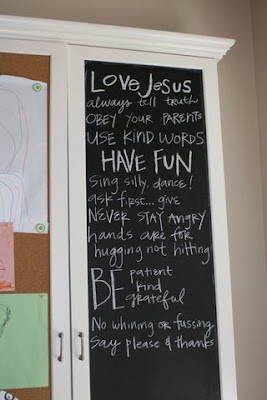 Love Jesus
always tell truth
OBEY YOUR PARENTS
USE KIND WORDS
HAVE FUN
Sing silly, dance!
ask first... give
NEVER STAY ANGRY
hands are for
hugging not hitting
BE patient
kind
grateful
No whining or fussing
Say please & thanks